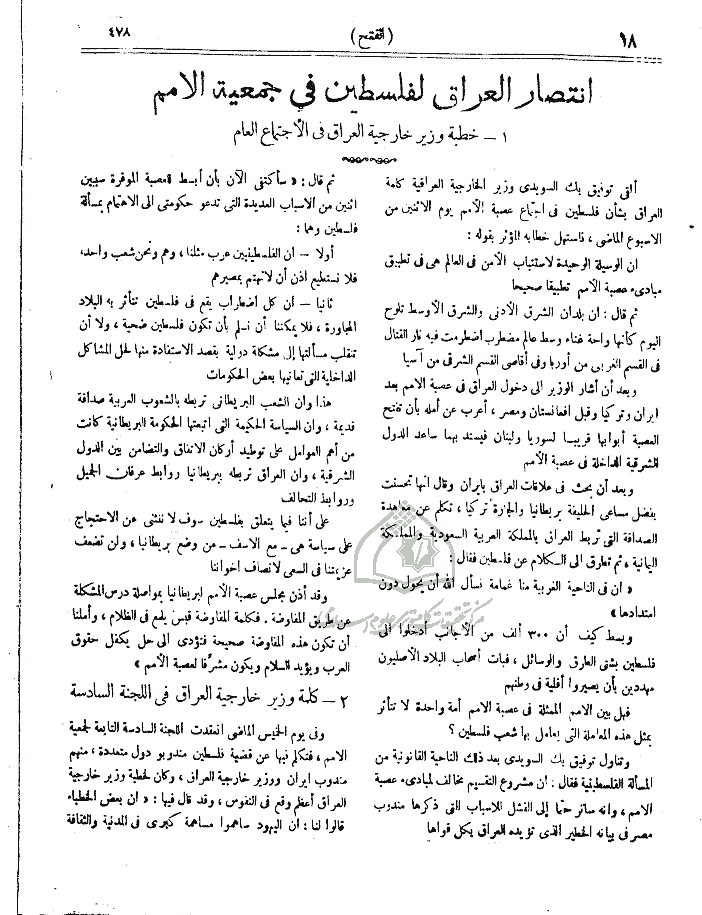 ١٨
(الفتح)
٤٧٨
انتصار العراق لفلسطين في جمعية الامم
١ — خطبة وزير خارجية العراق فى الاجتماع العام
ألقى توفيق بك السويدى وزير الخارجية العراقية كلمة
العراق بشأن فلسطين فى اجتماع عصبة الأمم يوم الاثنين من
الاسبوع الماضى ، فاستهل خطابه المؤثر بقوله :
ان الوسيلة الوحيدة لاستتباب الأمن فى العالم هى فى تطبيق
مبادىء عصبة الأمم تطبيقا صحيحا
ثم قال : ان بلدان الشرق الأدنى والشرق الأوسط تلوح
اليوم كأنها واحة غناء وسط عالم مضطرب اضطرمت فيه نار القتال
فى القسم الغربى من أوربا وفى أقاصى القسم الشرقى من آسيا
وبعد أن أشار الوزير الى دخول العراق فى عصبة الامم بعد
ايران وتركيا وقبل افغانستان ومصر ، أعرب عن أمله بأن تفتح
العصبة أبوابها قريبا لسوريا ولبنان فيسند بهما ساعد الدول
الشرقية الداخلة فى عصبة الأمم
وبعد أن بحث فى علاقات العراق بايران وقال انها تحسنت
بفضل مساعى الحليفة بريطانيا والجارة تركيا ، تكلم عن معاهدة
الصداقة التى تربط العراق بالمملكة العربية السعودية والمملكة
اليمانية ، ثم تطرق الى الكلام عن فلسطين فقال :
« ان فى الناحية الغربية منا غمامة نسأل الله أن يحول دون
امتدادها »
وبسط كيف أن ٣٠٠ ألف من الأجانب أدخلوا الى
فلسطين بشتى الطرق والوسائل ، فبات أصحاب البلاد الأصليون
مهددين بأن يصيروا أقلية فى وطنهم
فهل بين الامم الممثلة فى عصبة الامم أمة واحدة لا تتأثر
بمثل هذه المعاملة التى يعامل بها شعب فلسطين ؟
وتناول توفيق بك السويدى بعد ذلك الناحية القانونية من
المسألة الفلسطينية فقال : ان مشروع التقسيم مخالف لمبادىء عصبة
الامم ، وانه سائر حتما إلى الفشل للاسباب التى ذكرها مندوب
مصر فى بيانه الخطير الذى تؤيده العراق بكل قواها
ثم قال : « سأكتفى الآن بأن أبسط للعصبة الموقرة سببين
اثنين من الاسباب العديدة التى تدعو حكومتى الى الاهتمام بمسألة
فلسطين وهما :
أولا — ان الفلسطينيين عرب مثلنا ، وهم ونحن شعب واحد ،
فلا نستطيع اذن أن لا نهتم بمصيرهم
ثانيا — ان كل اضطراب يقع فى فلسطين تتأثر به البلاد
المجاورة ، فلا يمكننا أن نسلم بأن تكون فلسطين ضحية ، ولا أن
تنقلب مسألتها إلى مشكلة دولية بقصد الاستفادة منها لحل المشاكل
الداخلية التى تعانيها بعض الحكومات
هذا وان الشعب البريطانى تربطه بالشعوب العربية صداقة
قديمة ، وان السياسة الحكيمة التى اتبعتها الحكومة البريطانية كانت
من أهم العوامل على توطيد أركان الاتفاق والتضامن بين الدول
الشرقية ، وان العراق تربطه ببريطانيا روابط عرفان الجميل
وروابط التحالف
على أننا فيما يتعلق بفلسطين سوف لا ننثنى عن الاحتجاج
على سياسة هى ــ مع الاسف ــ من وضع بريطانيا ، ولن تضعف
عزيمتنا فى السعى لانصاف اخواننا
وقد أذن مجلس عصبة الأمم لبريطانيا بمواصلة درس المشكلة
عن طريق المفاوضة . فكلمة المفاوضة قبس يلمع فى الظلام ، وأملنا
أن تكون هذه المفاوضة صحيحة فتؤدى الى حل يكفل حقوق
العرب ويؤيد السلام ويكون مشرفًا لعصبة الأمم »
٢ — كلمة وزير خارجية العراق فى اللجنة السادسة
وفى يوم الخميس الماضى انعقدت اللجنة السادسة التابعة لجمعية
الامم ، فتكلم فيها عن قضية فلسطين مندوبو دول متعددة ، منهم
مندوب ايران ووزير خارجية العراق ، وكان لخطبة وزير خارجية
العراق أعظم وقع فى النفوس ، وقد قال فيها : « ان بعض الخطباء
قالوا لنا : ان اليهود ساهموا مساهمة كبرى فى المدنية والثقافة